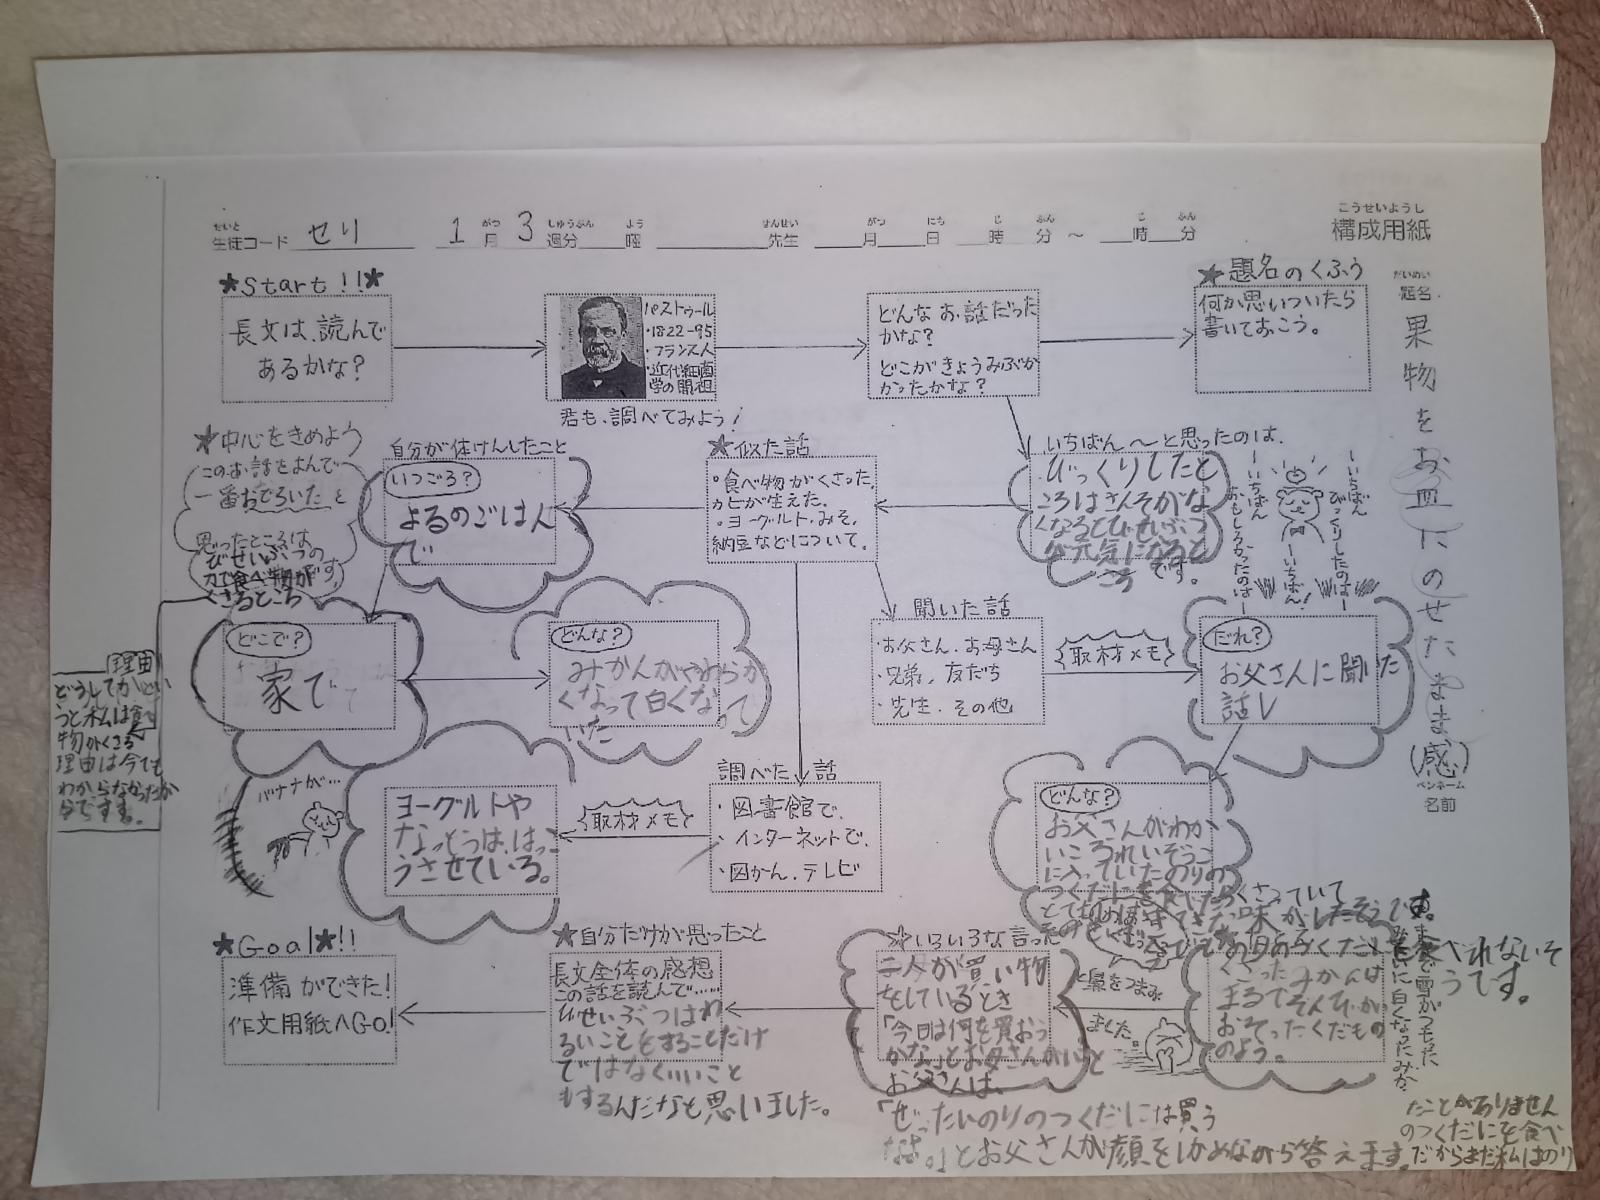 構成用紙
こうせいようし
せいと がつ しゅうぶん よう せんせい がつ にち じ ふん じ ふん
生徒コード せり 1月 3週分 曜 先生 月 日 時 分 ～ 時 分
だいめい
題名
果物をお皿にのせたまま(感)
ペンネーム
名前
★Start!!★
長文は、読んで
あるかな?
パストゥール
・1822-95
・フランス人
・近代細菌
学の開祖
君も、調べてみよう!
どんなお話だった
かな?
どこがきょうみぶか
かったかな?
★題名のくふう
何か思いついたら
書いておこう。
いちばん～と思ったのは、
びっくりしたと
ころはさんそがな
くなるとびせいぶつ
が元気になると
ころです。
ーいちばん
びっくりしたのはー
ーいちばん
おもしろかったのはー
ーいちばん!
★似た話
・食べ物がくさった、
カビが生えた。
・ヨーグルト・みそ、
納豆などについて。
自分が体けんしたこと
いつごろ?
よるのごはん
で
★中心をきめよう
このお話をよんで
一番おどろいたと
思ったところは
びせいぶつの
力で食べ物が
くさるところ
です。
理由
どうしてかとい
うと私は食べ
物がくさる
理由は今でも
わからなかったか
らです。
どこで?
家で
どんな?
みかんがやわらか
くなって白くなって
いた
聞いた話
・お父さん、お母さん
・兄弟、友だち
・先生、その他
取材メモ
だれ?
お父さんに聞いた
話し
どんな?
お父さんがわか
いころれいぞうこ
に入っていたのりの
つくだにを食べたらくさっていて
とてもすっぱい味がしたそうです。
調べた話
・図書館で、
・インターネットで、
・図かん、テレビ
取材メモ
ヨーグルトや
なっとうは、はっこ
うさせている。
バナナが…
くさったみかんは
まるでぞんびが
おそったくだもの
のよう。
まるで雪がつもった
みたいに白くなったみか
鼻をつまみ
ました。
★いろいろな言った
二人が買い物
をしているとき
「今日は何を買おう
かな」とお母さんがいうと
お父さんは、
「ぜったいのりのつくだには買う
なよ。」とお父さんが顔をしかめながら答えます。
だからまだ私はのり
のつくだにを食べ
たことがありません
★自分だけが思ったこと
長文全体の感想
この話を読んで……
びせいぶつはわ
るいことをすることだけ
ではなくいいこと
もするんだなと思いました。
★Goal★!!
準備ができた!
作文用紙へGo!